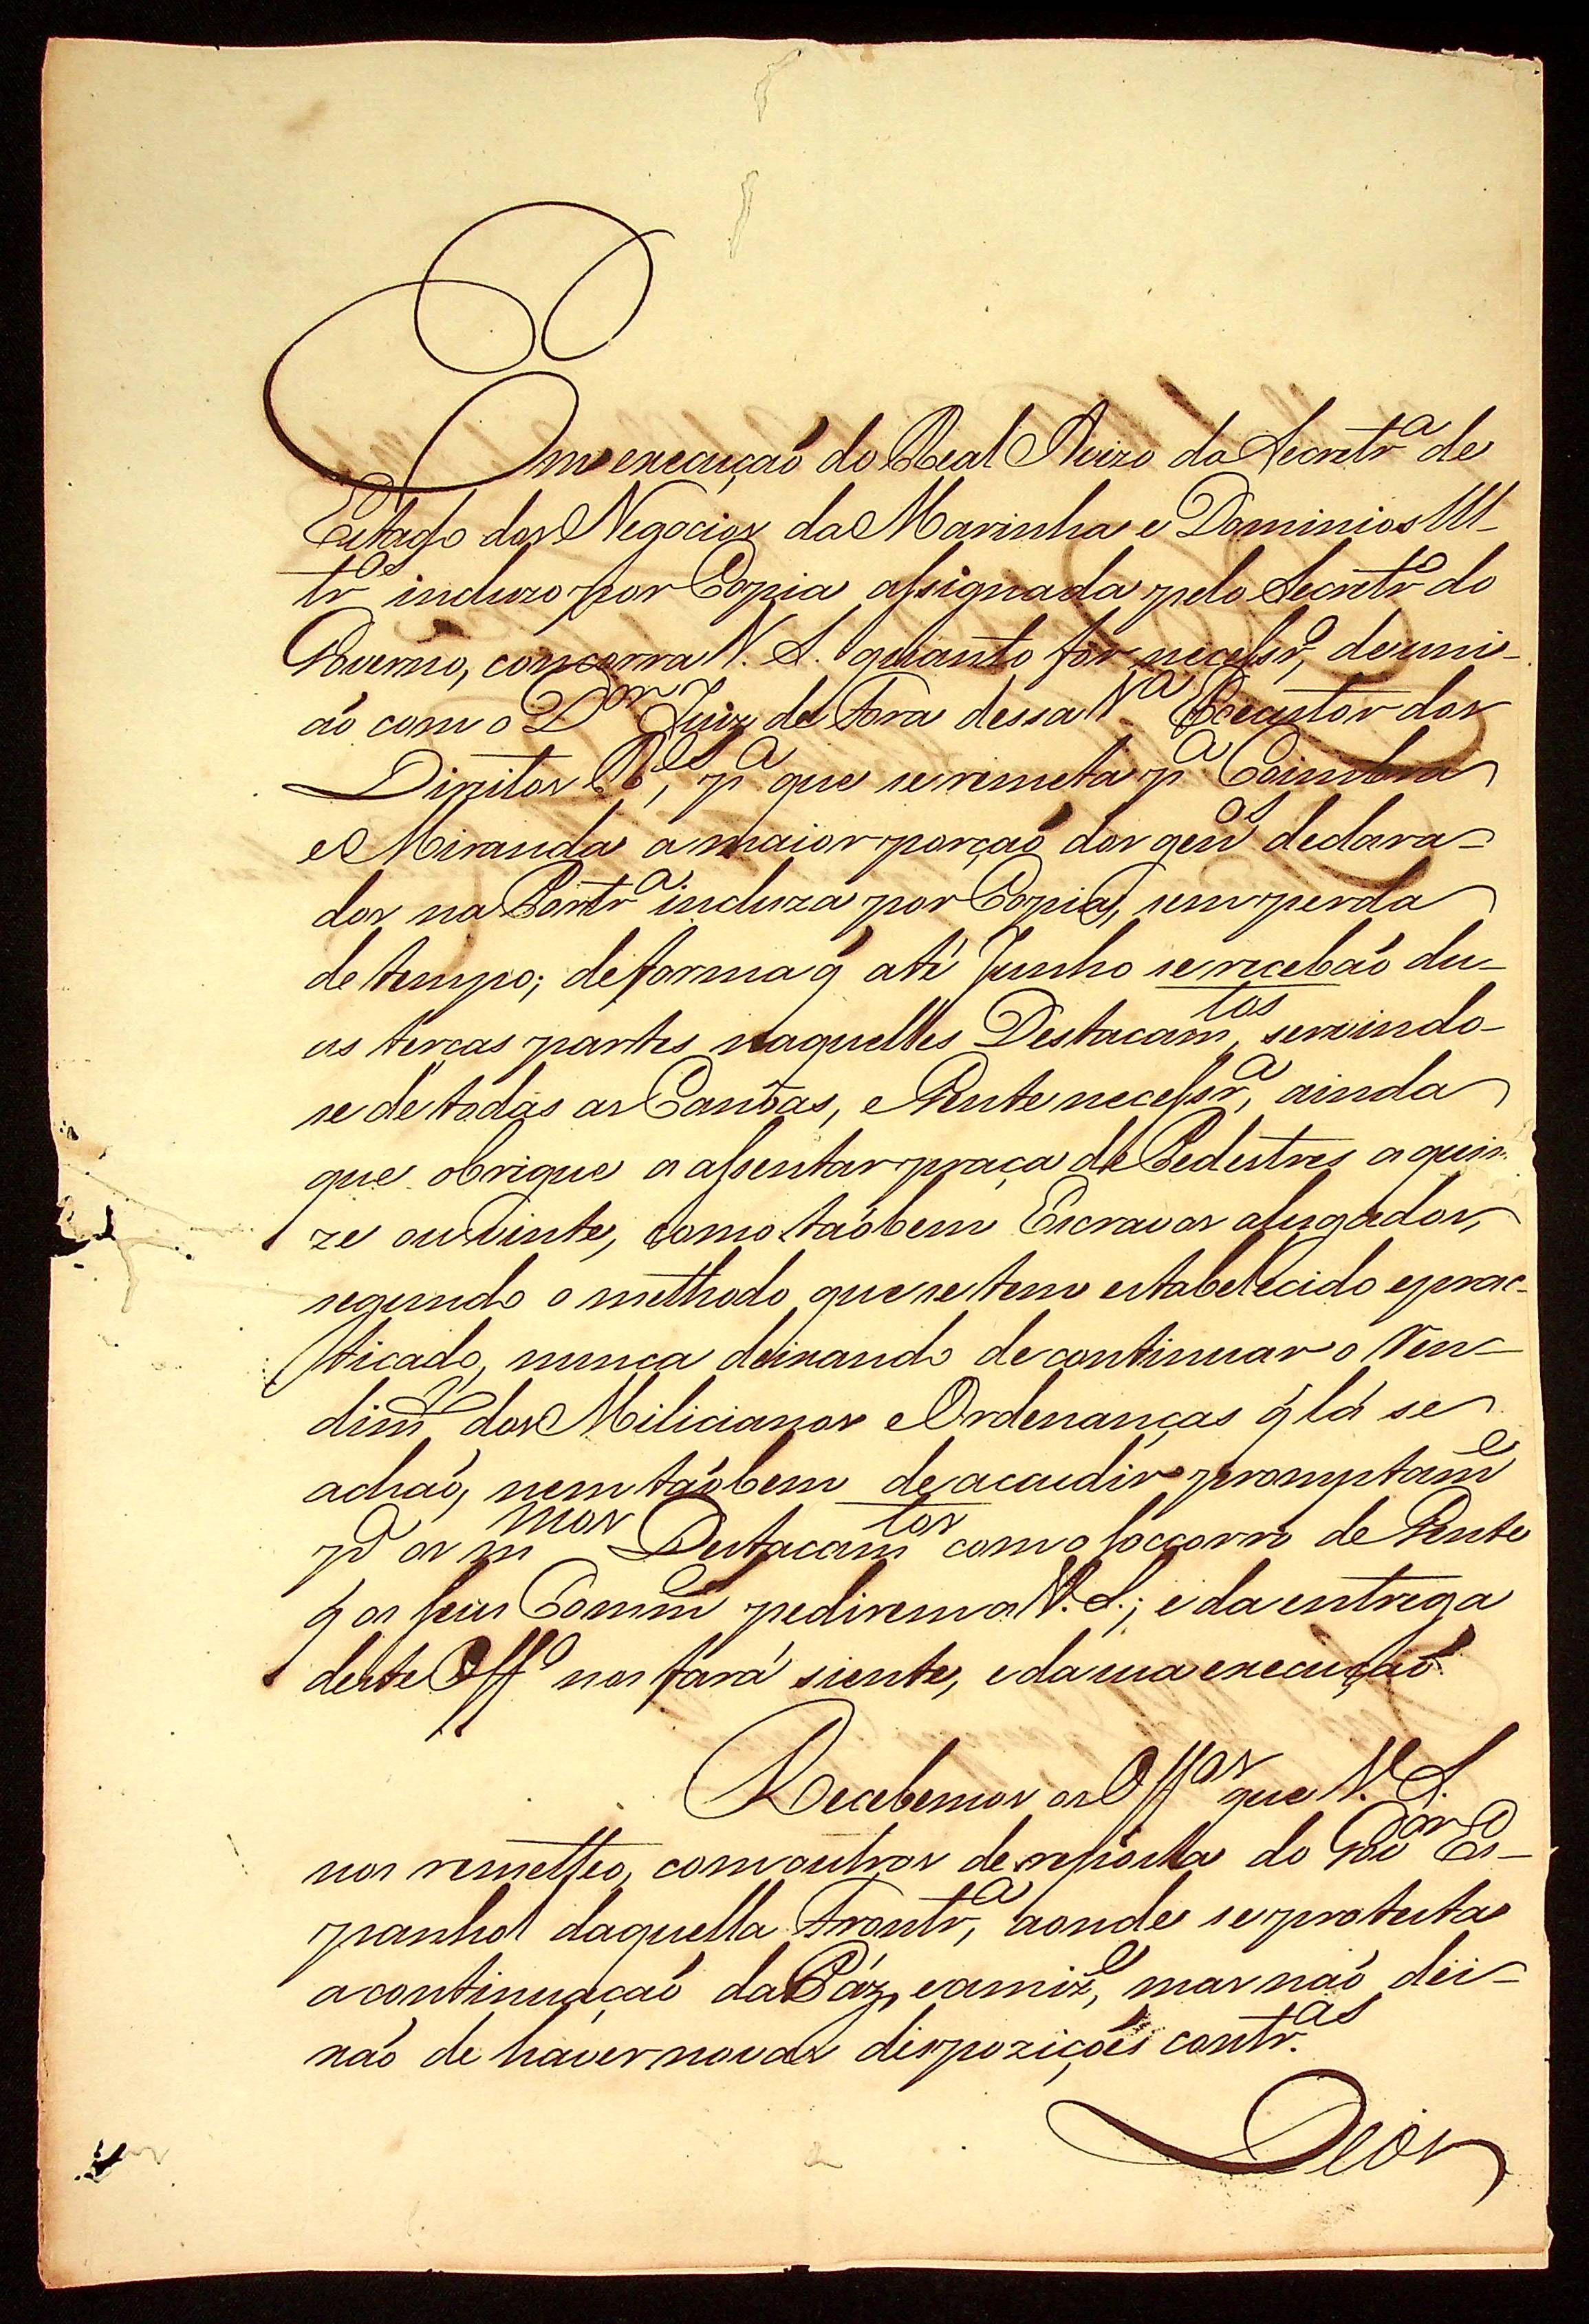 Em execuçaõ do Real Avizo da Secretrª de
Estado dos Negocios da Marinha e Dominios Ul-
trºˢ incluzo por Copia assignada pelo Secretrº do
Governo, concorra V. S. quanto for necessrº, de uni-
aõ com o Dºʳ Juiz de Fora dessa Vª Executor dos
Direitos Rᵉˢ, pª que se remeta pª Coimbra
e Miranda a maior porçaõ dos genºˢ declara-
dos na Portrª incluza por Copia, sem perda
de tempo; de forma q̃ até Junho se recebaõ du-
as terças partes naquelles Destacamᵗᵒˢ, servindo-
se de todas as Canôas, e Gente necessrª, ainda
que obrigue a assentar praça de Pedestres a quin-
ze ou vinte, como taõbem Escravos alugados,
segundo o methodo que se tem estabelecido e prac-
ticado, nunca deixando de continuar o Ven-
dimᵗº dos Milicianos e Ordenanças q̃ lá se
achaõ, nem taõbem de acudir promptamᵉ
pª os mᵐᵒˢ Destacamᵗᵒˢ com o soccorro de Gente
q̃ os seus Commᵉˢ pedirem a V. S.; e da entrega
deste Offº nos fará siente, e da sua execuçaõ.
Recebemos os Offᵒˢ que V. S.
nos remetteo, com outros de resposta do Govᵒʳ Es-
panhol daquella Frontrª, aonde se protesta
a continuaçaõ da Páz, e amizᵉ, mas naõ dei-
xaõ de haver novas dispoziçoẽs contrᵃˢ.
Deos